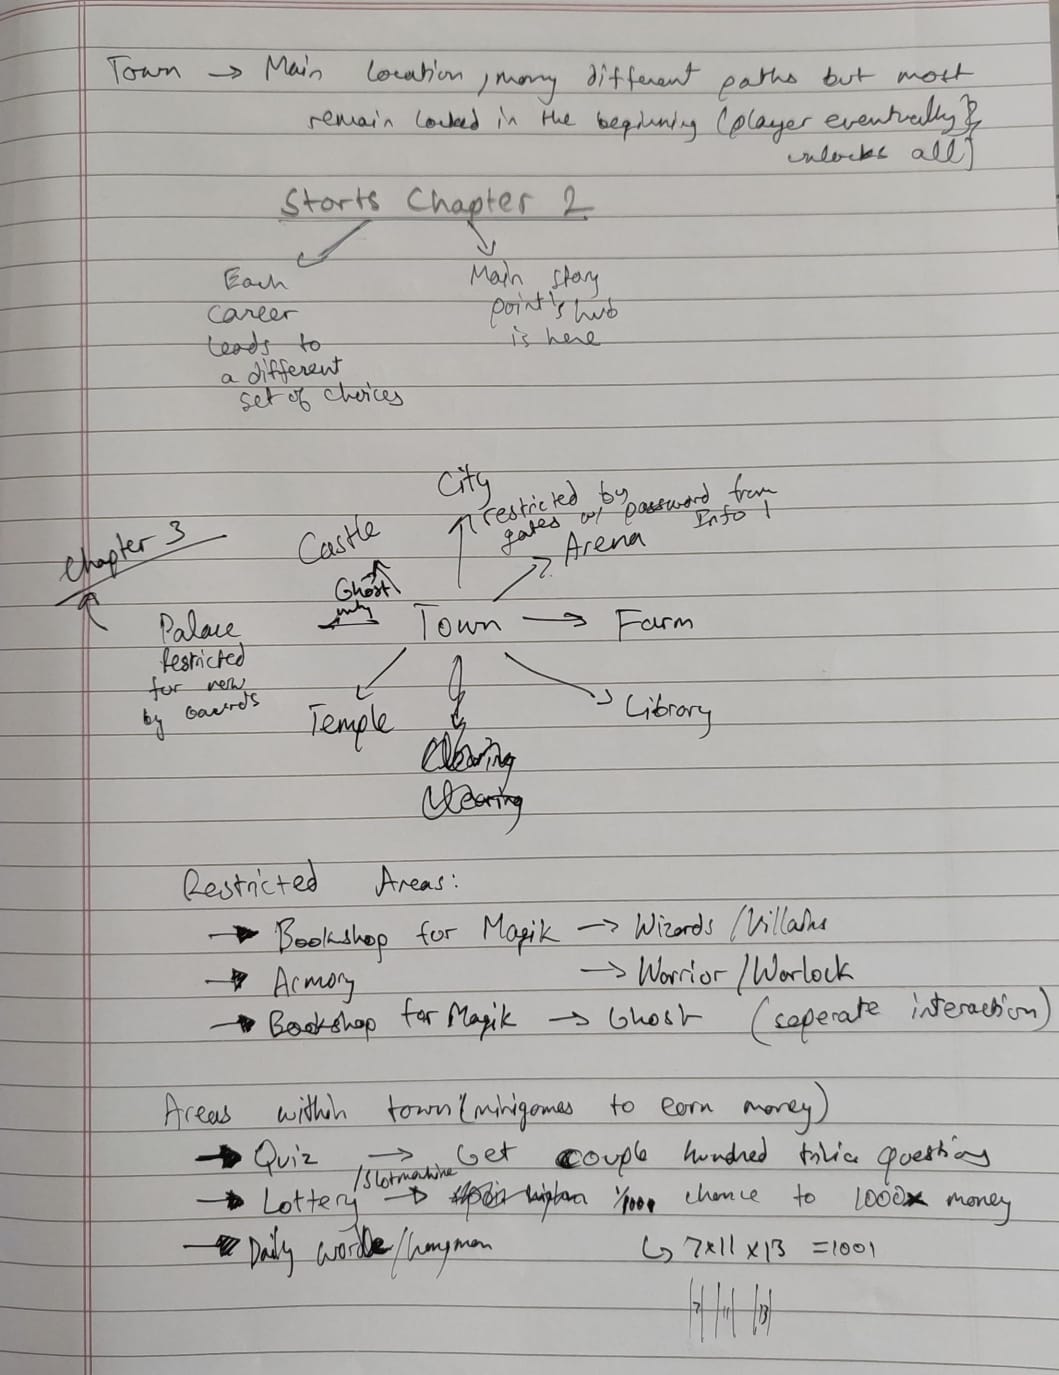 Town → Main location, many different paths but most
remain locked in the beginning (player eventually
unlocks all)
Starts Chapter 2
Each
career
leads to
a different
set of choices
Main story
point's hub
is here
City
restricted by
gates w/ password from
Info 1
Castle
Arena
Chapter 3
Ghost
only
Palace
Restricted
for now
by Guards
Town → Farm
Temple
Library
Clearing
Clearing
Restricted Areas:
→ Bookshop for Magik → Wizards/Villains
→ Armory → Warrior/Warlock
→ Bookshop for Magik → Ghost (seperate interaction)
Areas within town (minigames to earn money)
→ Quiz → Get couple hundred trivia questions
/Slotmachine
→ Lottery → 1/1001 chance to 1000x money
→ Daily wordle/hangman
↳ 7x11x13 = 1001
|7| |11| |13|